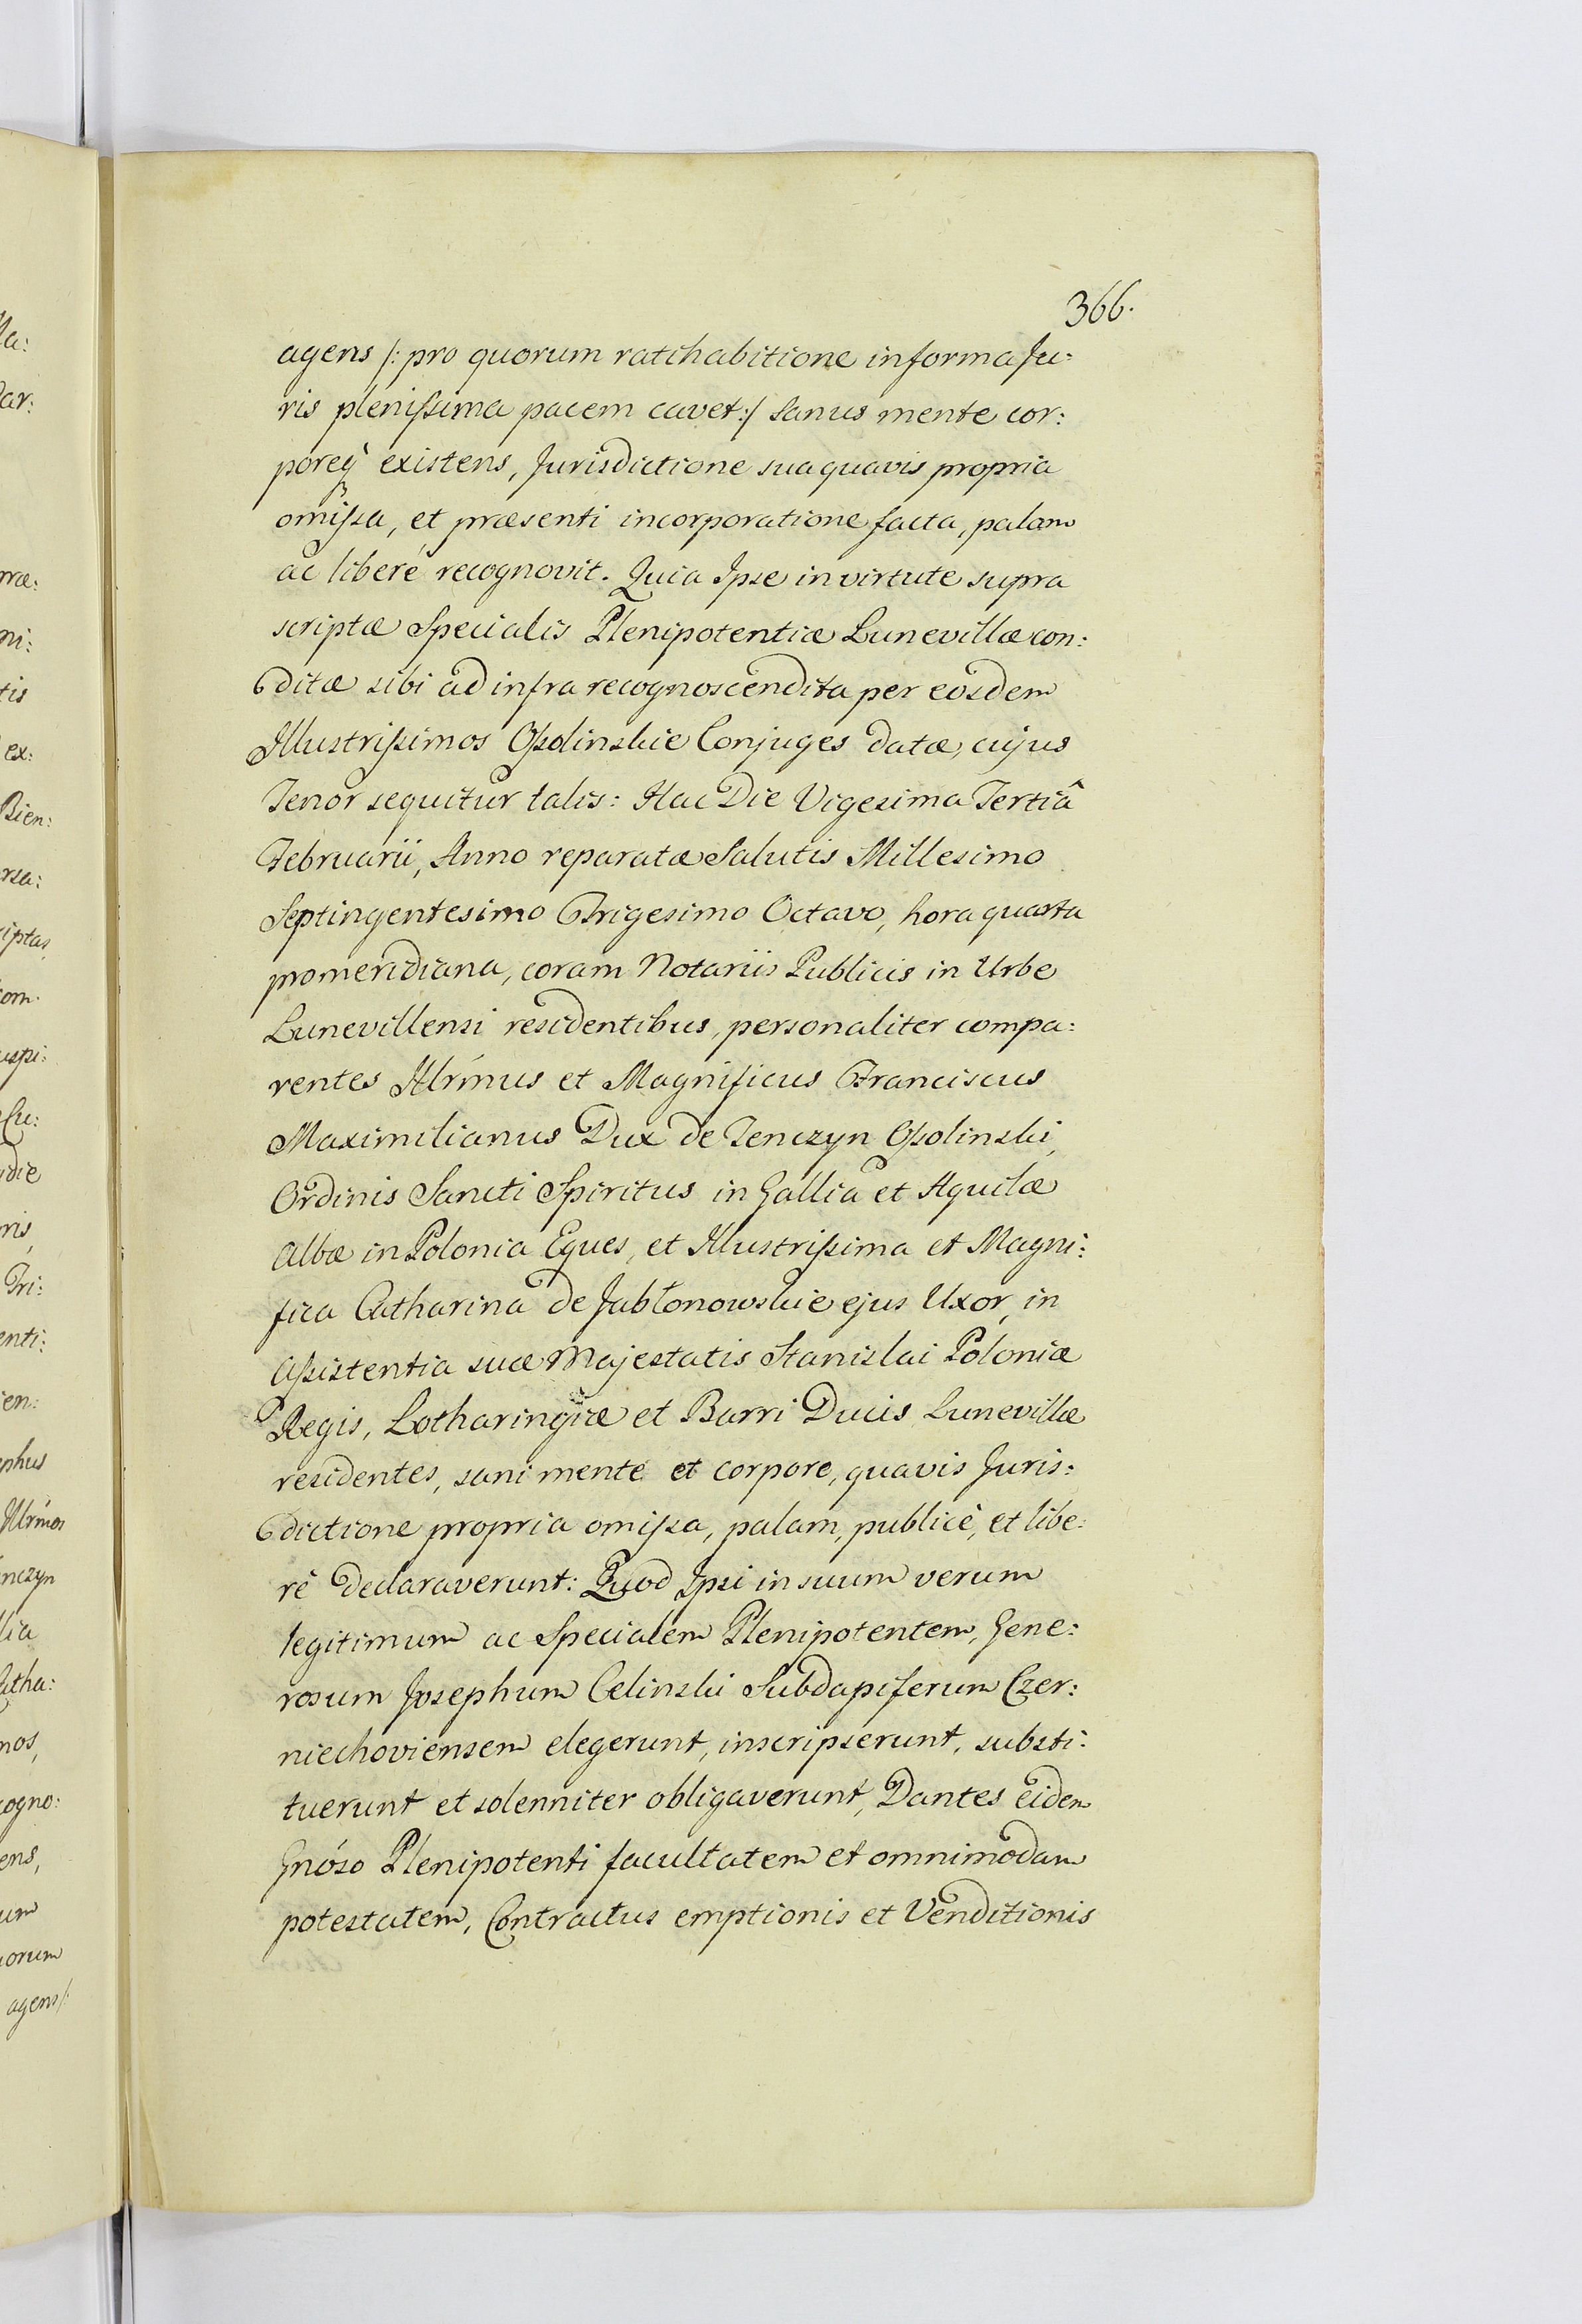 366.
agens /: pro quorum ratihabitione in forma Ju:
ris plenissima pacem cavet :/ sanus mente cor:
poreq̀ existens, Jurisdictione sua quavis propria
omissa, et præsenti incorporatione facta, palam
ac liberé recognovit. Quia Ipse in virtute supra
scriptæ Specialis Plenipotentiæ Lunevillæ con:
ditæ sibi ad infra recognoscendita per eosdem
Illustrissimos Ossolinskie Conjuges datæ, cujus
Tenor sequitur talis: Hac Die Vigesima Tertiâ
Februarii, Anno reparatæ Salutis Millesimo
Septingentesimo Trigesimo Octavo, hora quarta
promeridiana, coram Notariis Publicis in Urbe
Lunevillensi residentibus, personaliter compa:
rentes Illrímus et Magnificus Franciscus
Maximilianus Dux de Tenczyn Ossolinski,
Ordinis Sancti Spiritus in Gallia et Aquilæ
Albæ in Polonia Eques, et Illustrissima et Magni:
fica Catharina de Jabłonowskie ejus Uxor, in
Assistentia suæ Majestatis Stanislai Poloniæ
Regis, Lotharingiæ et Barri Ducis Lunevillæ
residentes, sani mente et corpore, quavis Juris:
dictione propria omissa, palam, publicè, et libe:
rè declaraverunt: Quod Ipsi in suum verum
legitimum ac Specialem Plenipotentem, Gene:
rosum Josephum Celinski Subdapiferum Czer:
niechoviensem elegerunt, inscripserunt, substi:
tuerunt et solenniter obligaverunt, Dantes eidem
Gnóso Plenipotenti facultatem et omnimodam
potestatem, Contractus emptionis et Venditionis